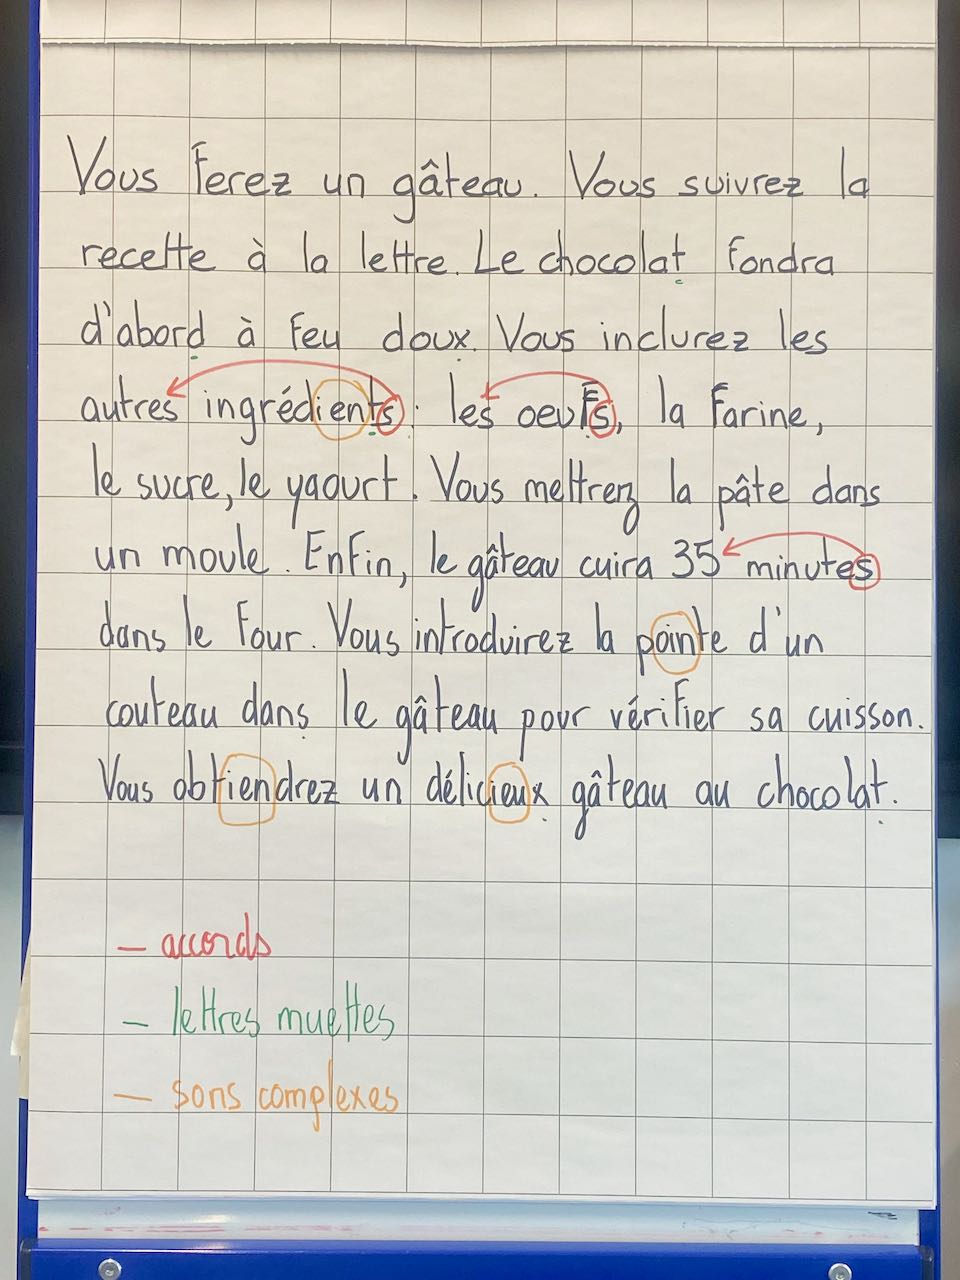 Vous ferez un gâteau. Vous suivrez la
recette à la lettre. Le chocolat fondra
d'abord à feu doux. Vous inclurez les
autres ingrédients : les oeufs, la farine,
le sucre, le yaourt. Vous mettrez la pâte dans
un moule. Enfin, le gâteau cuira 35 minutes
dans le four. Vous introduirez la pointe d'un
couteau dans le gâteau pour vérifier sa cuisson.
Vous obtiendrez un délicieux gâteau au chocolat.
- accords
- lettres muettes
- sons complexes